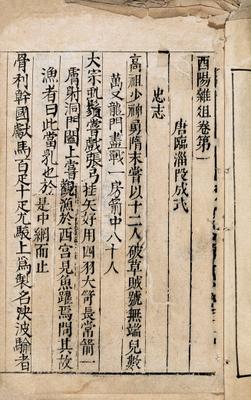 酉陽雜俎卷第一
唐臨淄段成式
忠志
高祖少神勇隋末嘗以十二人破草賊號無端兒數
萬又龍門盡戰一房箭中八十人
大宗虬鬚嘗戲張弓挂矢好用四羽大笴長常箭一
膚射洞門闔上嘗觀漁於西宫見魚躍焉問其故
漁者曰此當乳也於是中網而止
骨利幹國獻馬百疋十疋尤駿上爲製名决波騟者